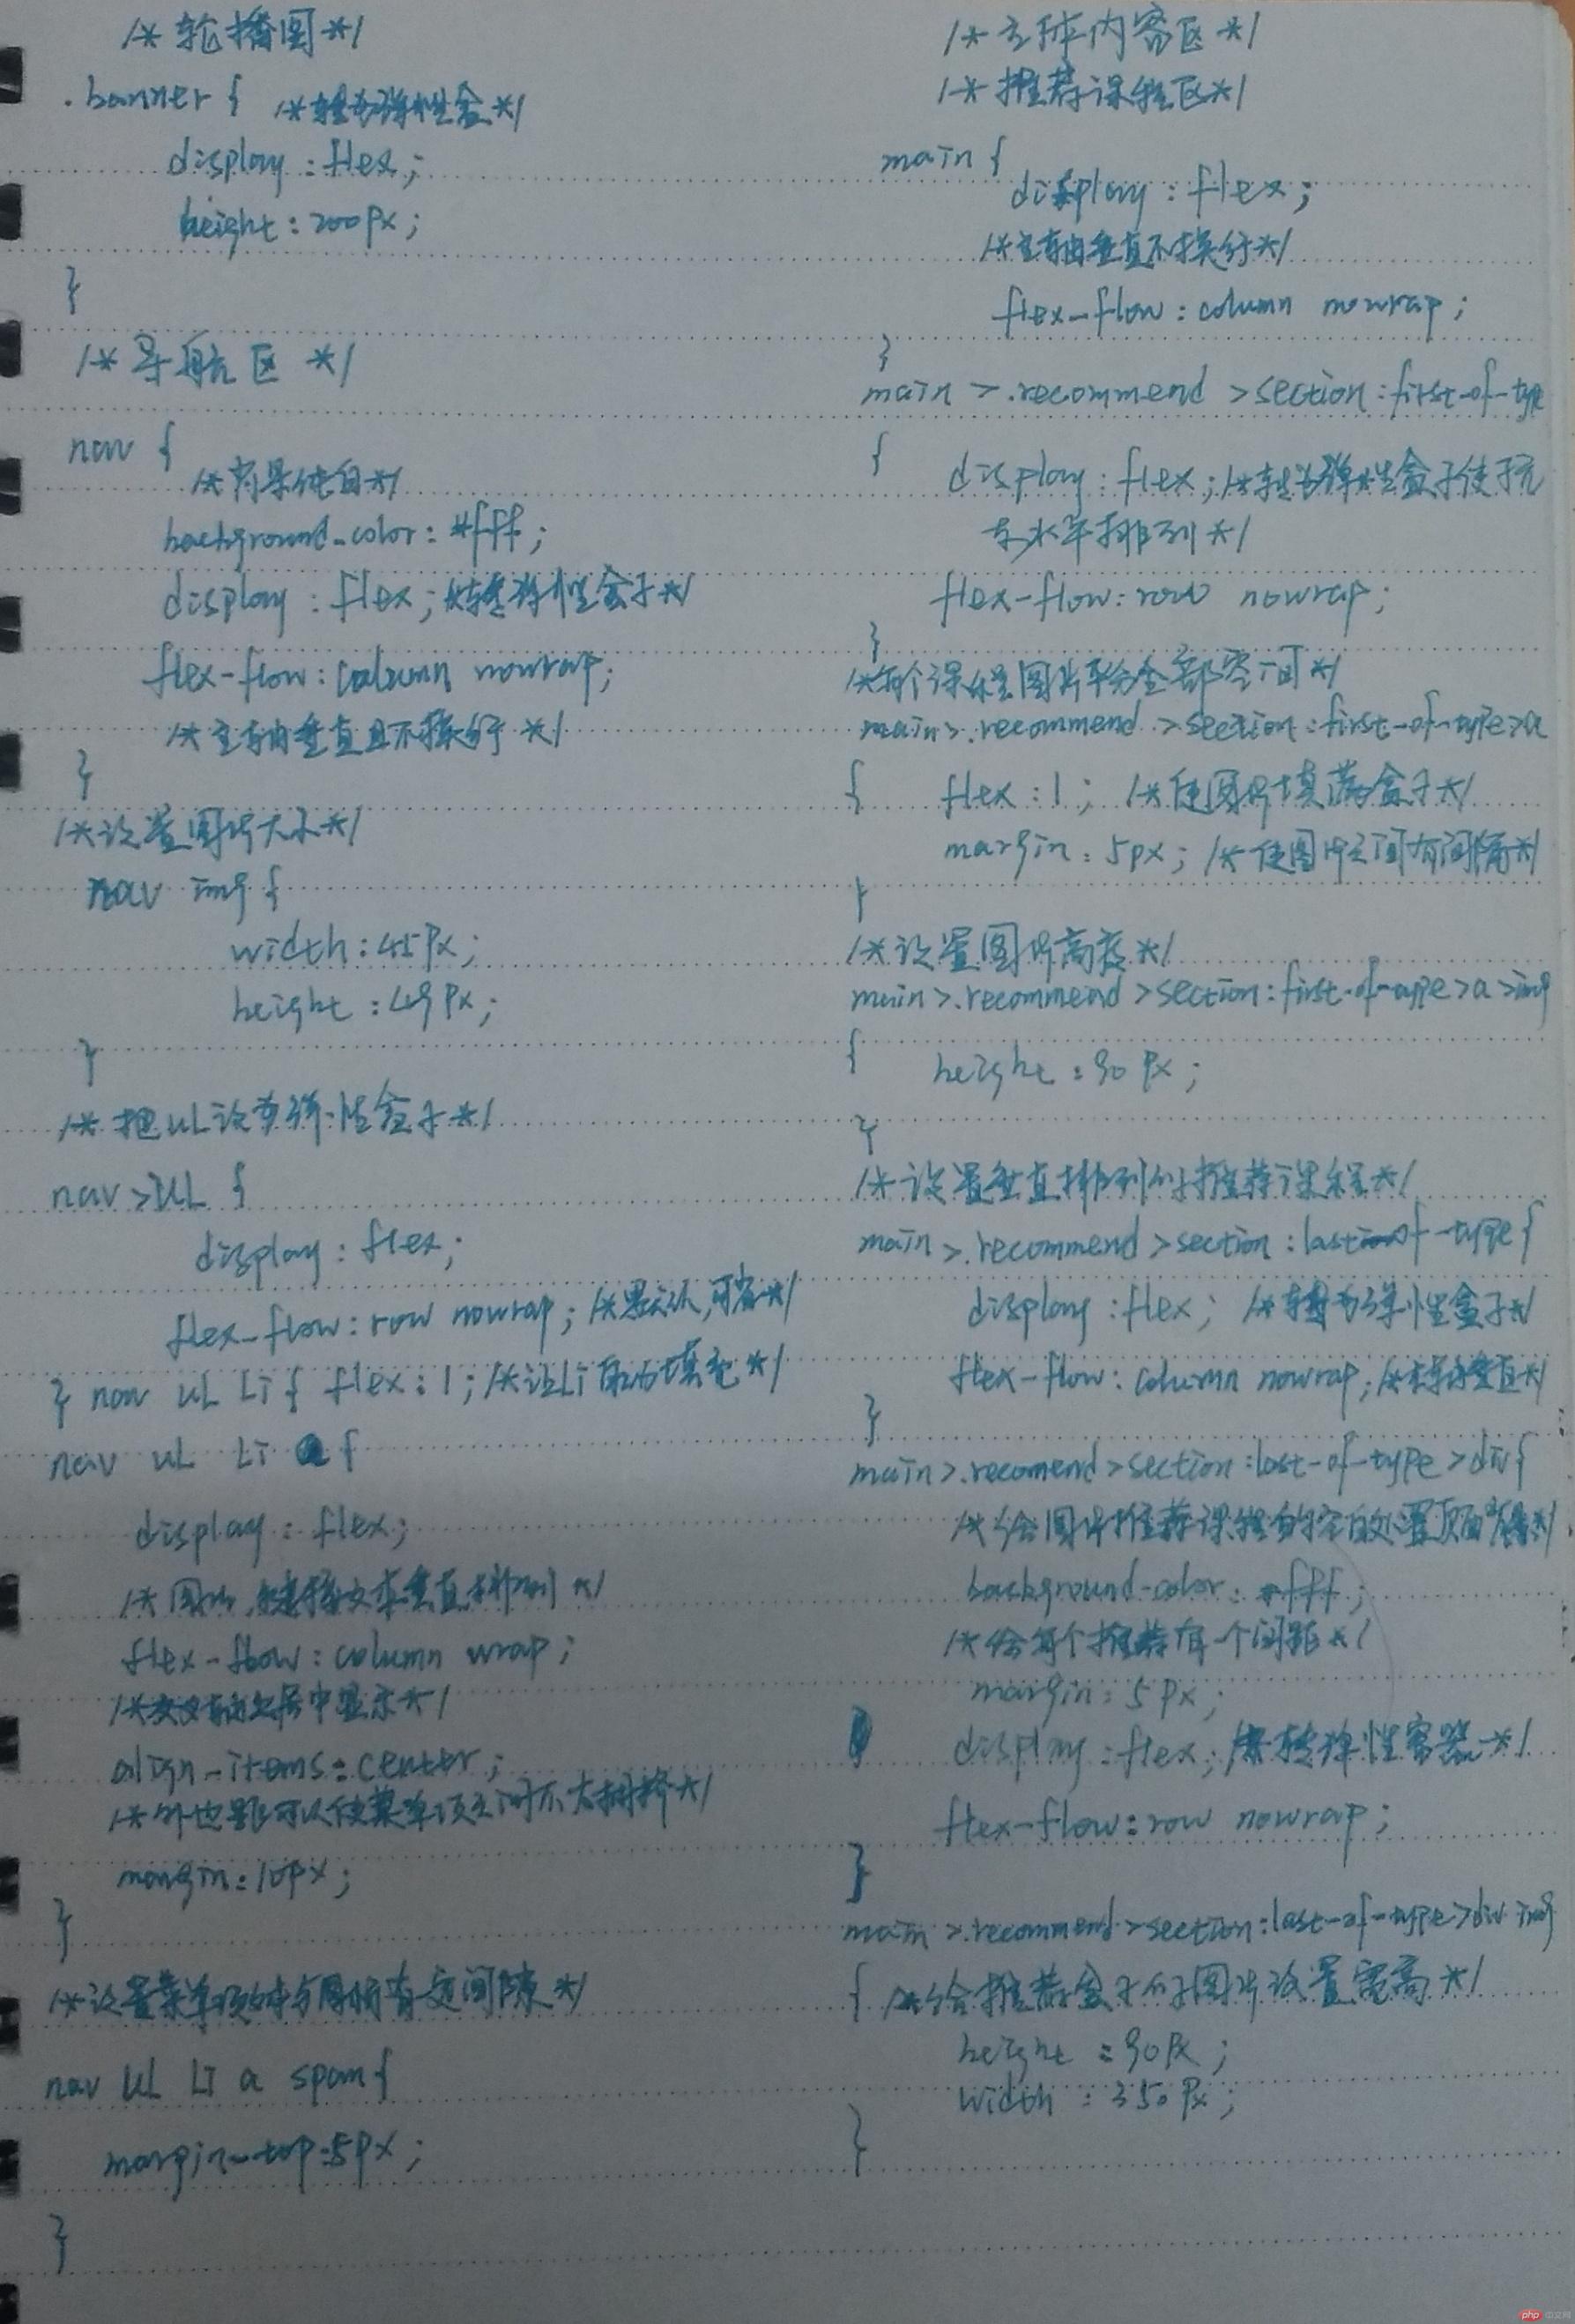 /* 轮播图 */
.banner { /*转为弹性盒*/
display : flex;
height : 200px;
}
/* 导航区 */
nav {
/*背景纯白*/
background-color : #fff;
display : flex; /*转弹性盒子*/
flex-flow : column nowrap;
/* 主轴垂直且不换行 */
}
/*设置图片大小*/
nav img {
width : 45px;
height : 49px;
}
/* 把ul设为弹性盒子 */
nav > ul {
display : flex;
flex-flow : row nowrap; /*默认,可省*/
} nav ul li { flex : 1; /*让li自动填充*/
nav ul li a {
display : flex;
/* 图片,链接文本垂直排列 */
flex-flow : column wrap;
/*交叉轴居中显示*/
align-items : center;
/*外边距可以使菜单项之间不太拥挤*/
margin : 10px;
}
/*设置菜单项与图片有一定间隙*/
nav ul li a span {
margin-top : 5px;
}
/* 主体内容区 */
/* 推荐课程区*/
main {
display : flex;
/*主轴垂直不换行*/
flex-flow : column nowrap;
}
main > .recommend > section : first-of-type
{ display : flex; /*转为弹性盒子使元
素水平排列*/
flex-flow : row nowrap;
}
/*每个课程图片平分全部空间*/
main > .recommend > section : first-of-type > a
{ flex : 1; /*使图片填满盒子*/
margin : 5px; /* 使图片之间有间隔*/
}
/*设置图片高度*/
main > .recommend > section : first-of-type > a > img
{ height : 90px;
}
/* 设置垂直排列的推荐课程*/
main > .recommend > section : last-of-type {
display : flex; /*转为弹性盒子*/
flex-flow : column nowrap; /*主轴垂直*/
}
main > .recomend > section : last-of-type > div {
/* 给图片推荐课程的空白处
background-color : #fff;
/*给每个推荐有一个间距*/
margin : 5px;
display : flex; /*转弹性容器*/
flex-flow : row nowrap;
}
main > .recommend > section : last-of-type > div img
{ /*给推荐盒子的图片设置宽高*/
height : 90px;
width : 350px;
}
php 中文网